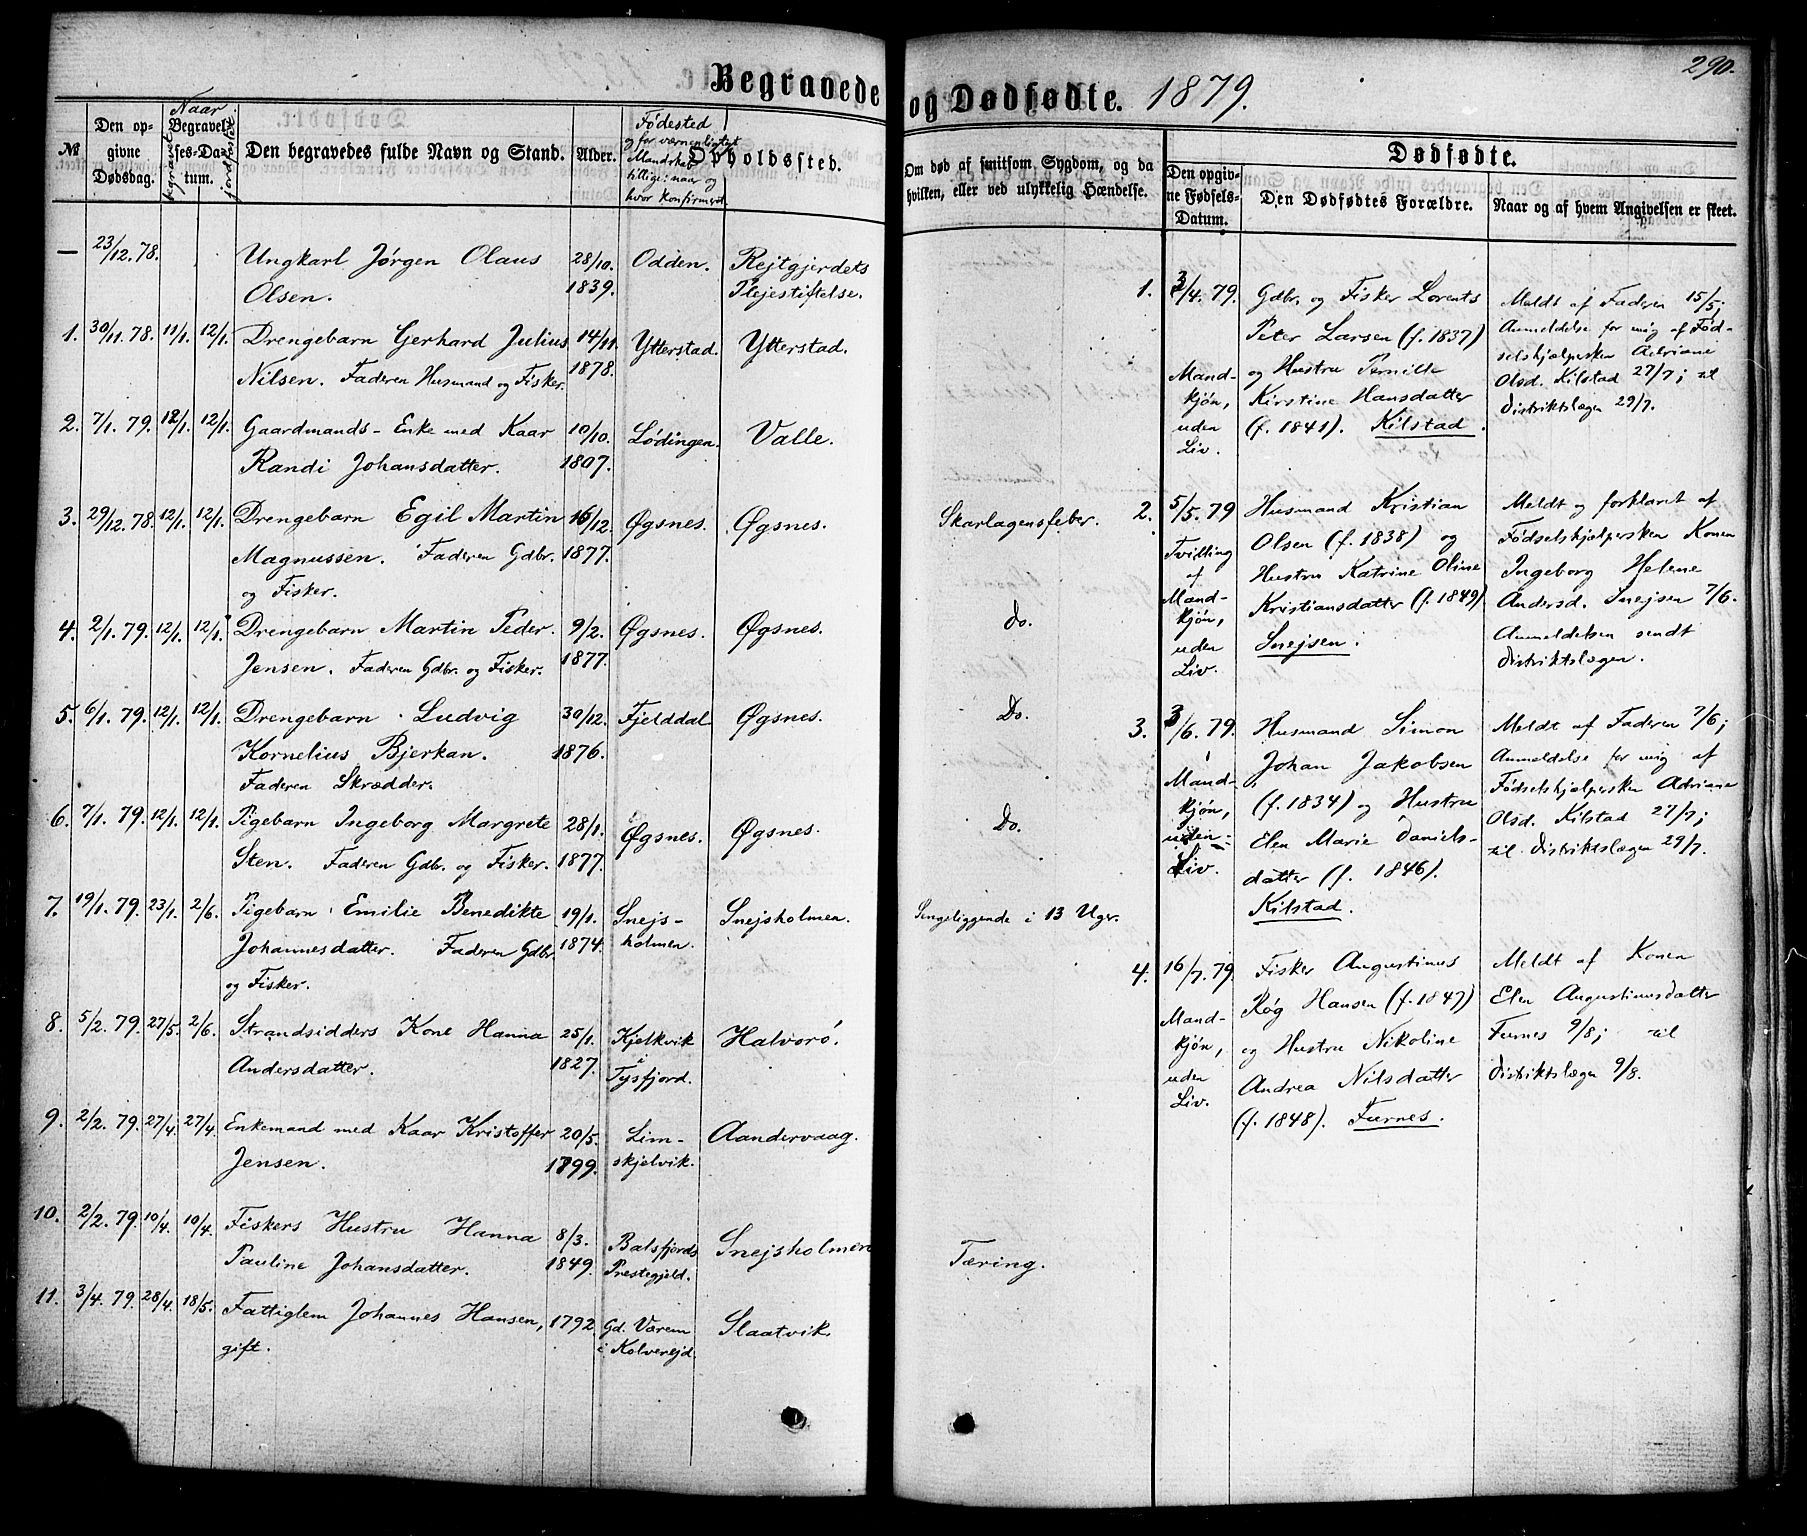 290.
Begravede og Dødfødte. 1879.
№
Den op-
givne
Dødsdag.
Naar
Begravel-
ses-Da-
tum.
begravet
jordfæstet
Den begravedes fulde Navn og Stand.
Alder.
Fødested
og for værnepligtigt
Mandskab
tillige: naar og
hvor konfirmeret.
Opholdssted.
Om død af smitsom Sygdom, og da
hvilken, eller ved ulykkelig Hændelse.
Dødfødte.
Den opgiv-
ne Fødsels-
Datum.
Den Dødfødtes Forældre.
Naar og af hvem Angivelsen er skeet.
— 23/12. 78. Ungkarl Jørgen Olaus 28/10. Odden. Rejtgjerdets
Olsen. 1839. Plejestiftelse.
1. 30/11. 78. 11/1. 12/1. Drengebarn Gerhard Julius 14/11. Ytterstad. Ytterstad.
Nilsen. Faderen Husmand og Fisker. 1878.
2. 7/1. 79. 12/1. 12/1. Gaardmands-Enke med Kaar 10/10. Lødingen. Valle.
Randi Johansdatter. 1807.
3. 29/12. 78. 12/1. 12/1. Drengebarn Egil Martin 16/12. Øgsnes. Øgsnes. Skarlagensfeber.
Magnussen. Faderen Gdbr. 1877.
og Fisker.
4. 2/1. 79. 12/1. 12/1. Drengebarn Martin Peder 9/2. Øgsnes. Øgsnes. Do.
Jensen. Faderen Gdbr. og Fisker. 1877.
5. 6/1. 79. 12/1. 12/1. Drengebarn Ludvig 30/12. Fjelddal Øgsnes. Do.
Kornelius Bjerkan. 1876.
Faderen Skrædder.
6. 7/1. 79. 12/1. 12/1. Pigebarn Ingeborg Margrete 28/1. Øgsnes. Øgsnes. Do.
Sten. Faderen Gdbr. og Fisker. 1877.
7. 19/1. 79. 23/1. 2/6. Pigebarn Emilie Benedikte 19/1. Snejs- Snejsholmen. Sengeliggende i 13 Uger.
Johannesdatter. Faderen Gdbr. 1874. holmen.
og Fisker.
8. 5/2. 79. 27/5. 2/6. Strandsidders Kone Hanna 25/1. Kjelkvik Halvorö.
Andersdatter. 1827. i Tysfjord.
9. 2/2. 79. 27/4. 27/4. Enkemand med Kaar Kristoffer 20/5. Lim- Aandervaag.
Jensen. 1799. skjelvik.
10. 2/2. 79. 10/4. 10/4. Fiskers Hustru Hanna 8/3. Balsfjords Snejsholmen Tæring.
Pauline Johansdatter. 1849. Prestegjeld.
11. 3/4. 79. 28/4. 18/5. Fattiglem Johannes Hansen, 1792. Gd. Værem Slaatvik.
gift. i Kolverejd.
1. 3/4. 79.
Mand-
kjøn,
uden
Liv.
Gdbr. og Fisker Lorents
Peter Larsen (f. 1837)
og Hustru Pernille
Kirstine Hansdatter
(f. 1841). Kilstad.
Meldt af Faderen 15/5;
Anmeldelse for mig af Fød-
selshjælpersken Adriane
Olsd. Kilstad 27/7; til
Distriktslægen 29/7.
2. 5/5. 79
Tvilling
af
Mand-
kjøn,
uden
Liv.
Husmand Kristian
Olsen (f. 1838) og
Hustru Katrine Oline
Kristiansdatter (f. 1849)
Snejsen.
Meldt og forklaret af
Fødselshjælpersken Konen
Ingeborg Helene
Andersd. Snejsen 7/6.
Anmeldelsen sendt
Distriktslægen.
3. 3/6. 79.
Mand-
kjøn,
uden
Liv.
Husmand Simon
Johan Jakobsen
(f. 1834) og Hustru
Elen Marie Daniels-
datter (f. 1846).
Kilstad.
Meldt af Faderen 7/6;
Anmeldelse for mig af
Fødselshjælpersken Adriane
Olsd. Kilstad 27/7;
til Distriktslægen 29/7.
4. 16/7. 79.
Mand-
kjøn,
uden
Liv.
Fisker Augustinus
Røg Hansen (f. 1847)
og Hustru Nikoline
Andrea Nilsdatter
(f. 1848). Furnes.
Meldt af Konen
Elen Augustinusdatter
Furnes 9/8; til
Distriktslægen 9/8.